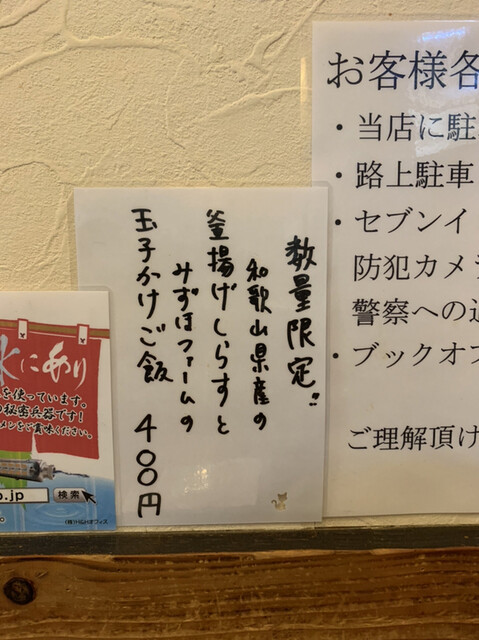 数量限定!!
和歌山県産の
釜揚げしらすと
みずほファームの
玉子かけご飯 400円
お客様各
・当店に駐
・路上駐車
・セブンイ
防犯カメ
警察への
・ブックオフ
ご理解頂け
水にあり
を使っています。
の秘密兵器です!
メンをご賞味ください。
.jp 検索
(株)HIGHオフィス